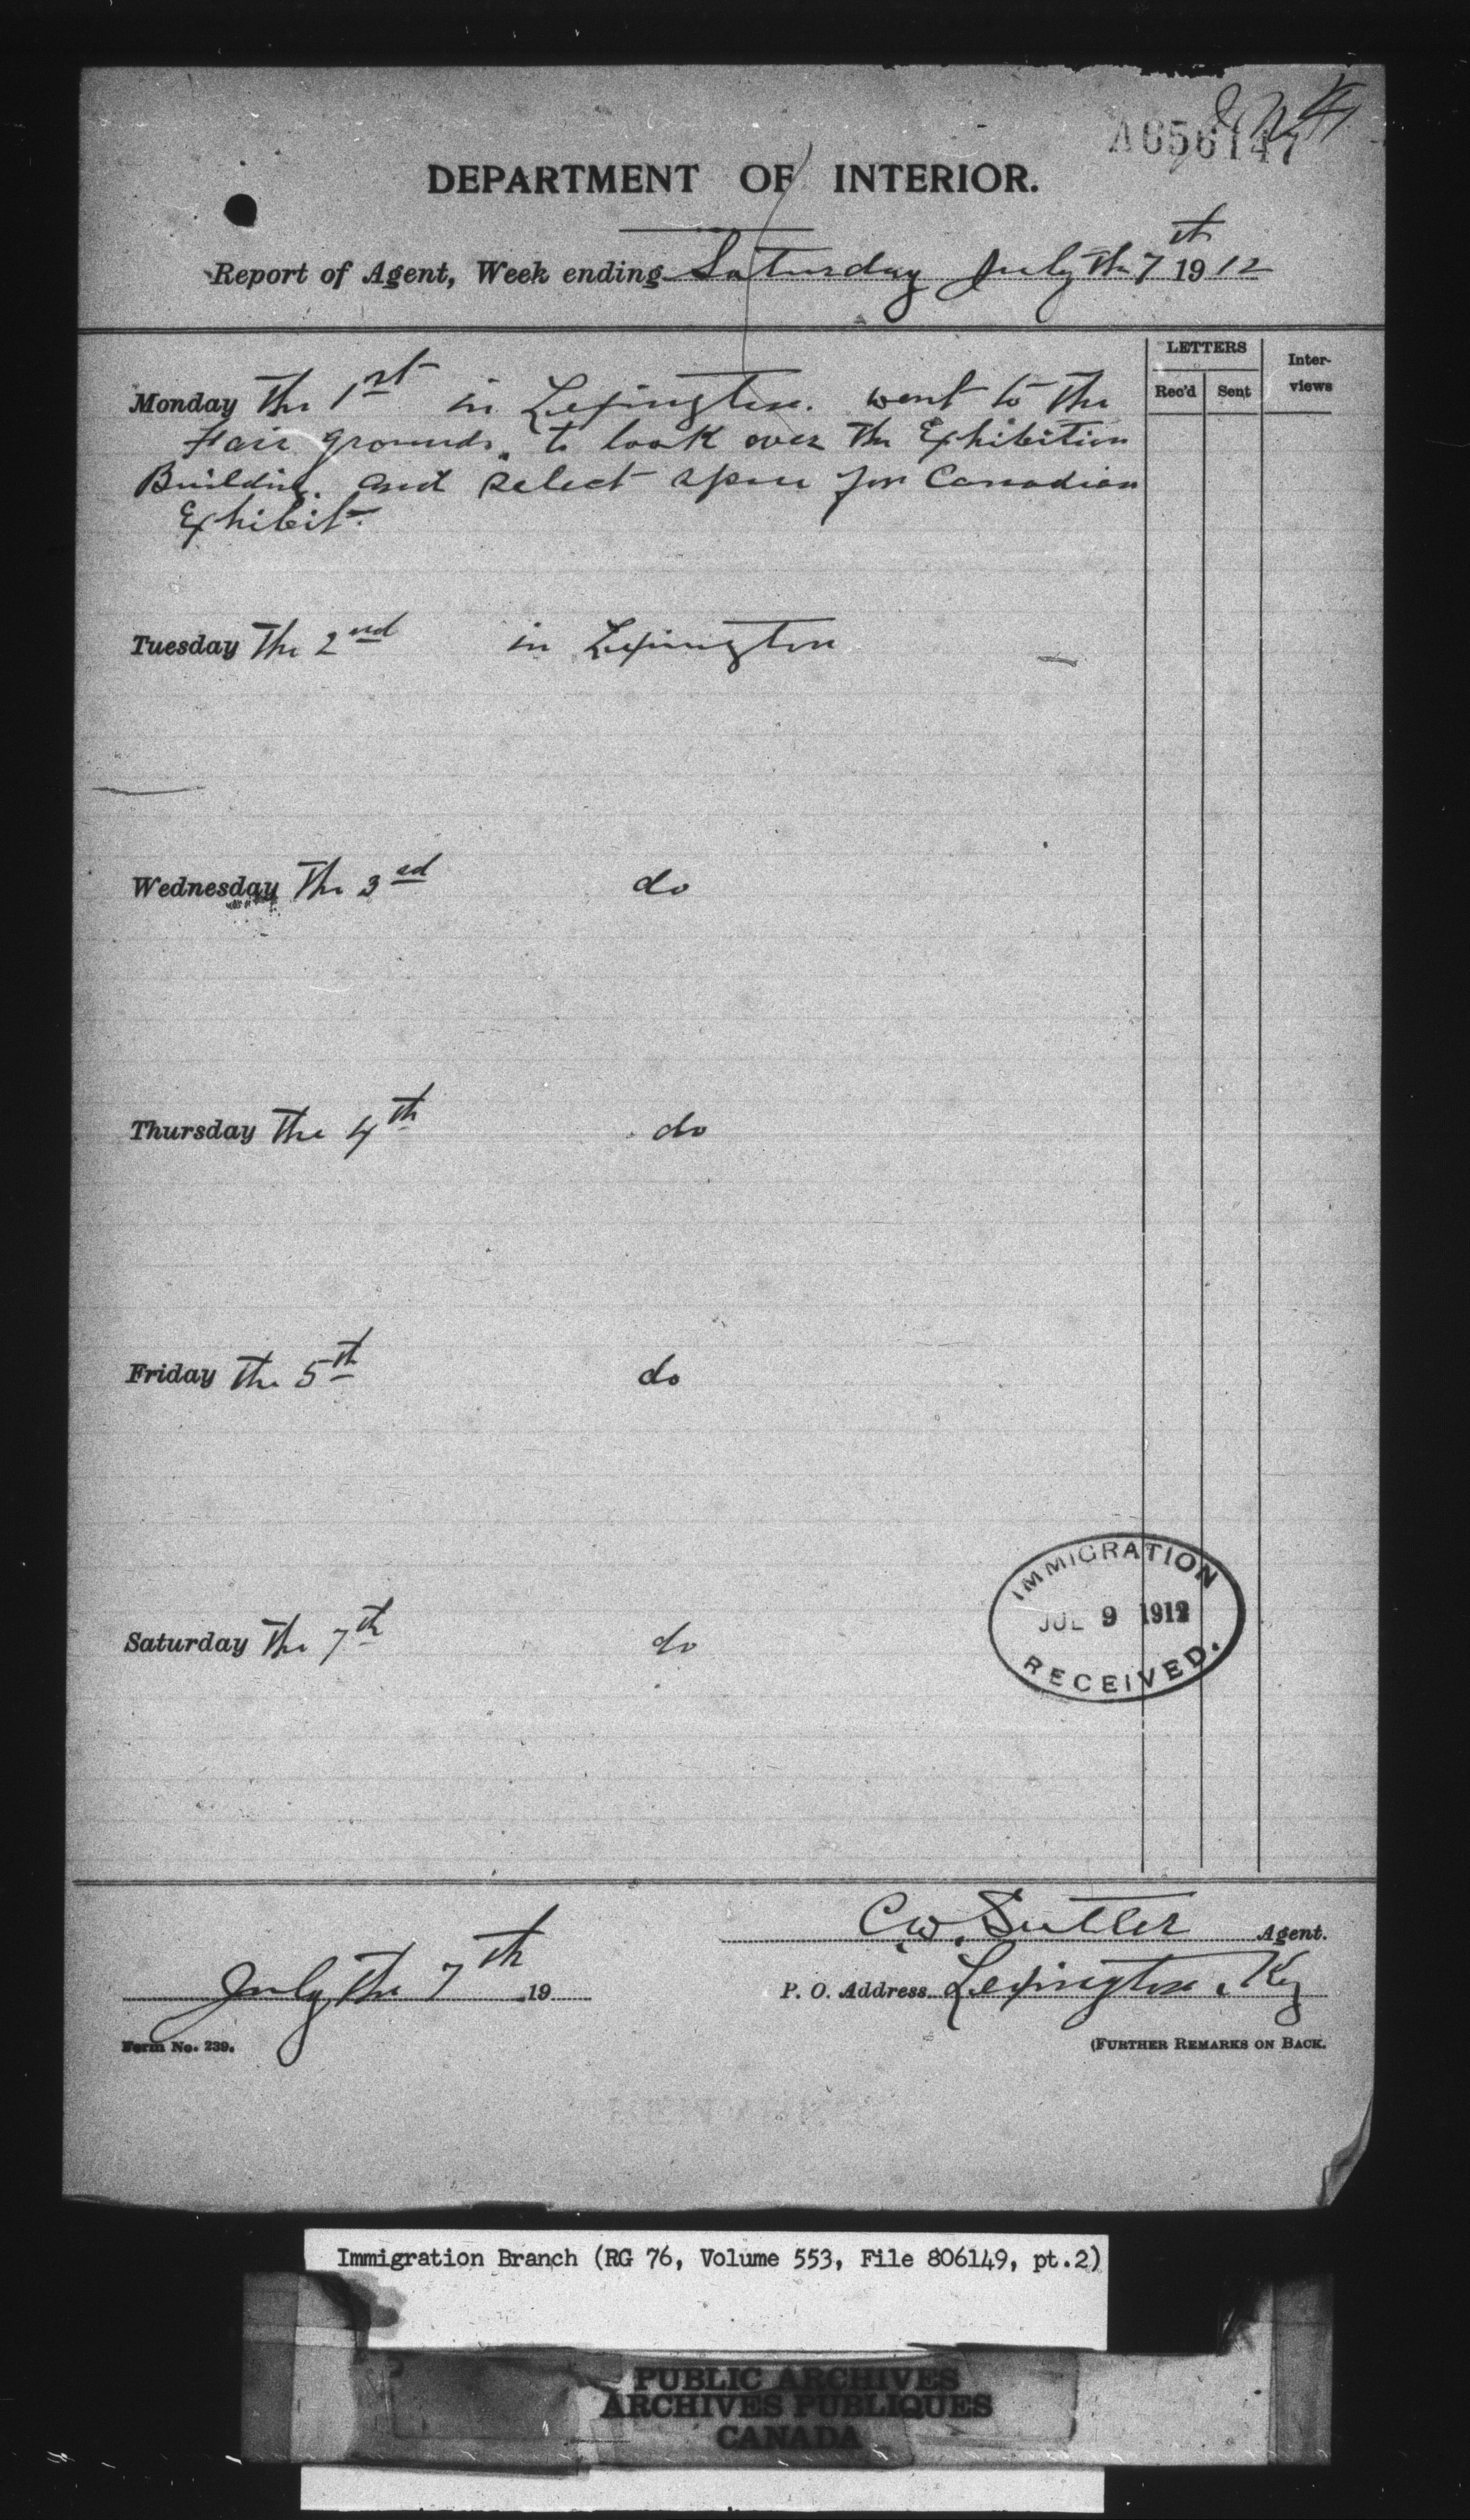 A656147
DEPARTMENT OF INTERIOR.
Report of Agent, Week ending Saturday July the 7th 1912
LETTERS
Rec'd Sent
Inter-views
Monday The 1st in Lexington. went to the
Fair grounds. to look over the Exhibition
Building. and select space for Canadian
Exhibit.
Tuesday The 2nd in Lexington
Wednesday The 3rd do
Thursday The 4th do
Friday The 5th do
Saturday The 7th do
IMMIGRATION
JUL 9 1912
RECEIVED.
C.W. Sutter Agent.
July The 7th 19
P. O. Address Lexington, Ky
Form No. 239.
(FURTHER REMARKS ON BACK.
Immigration Branch (RG 76, Volume 553, File 806149, pt.2)
PUBLIC ARCHIVES
ARCHIVES PUBLIQUES
CANADA